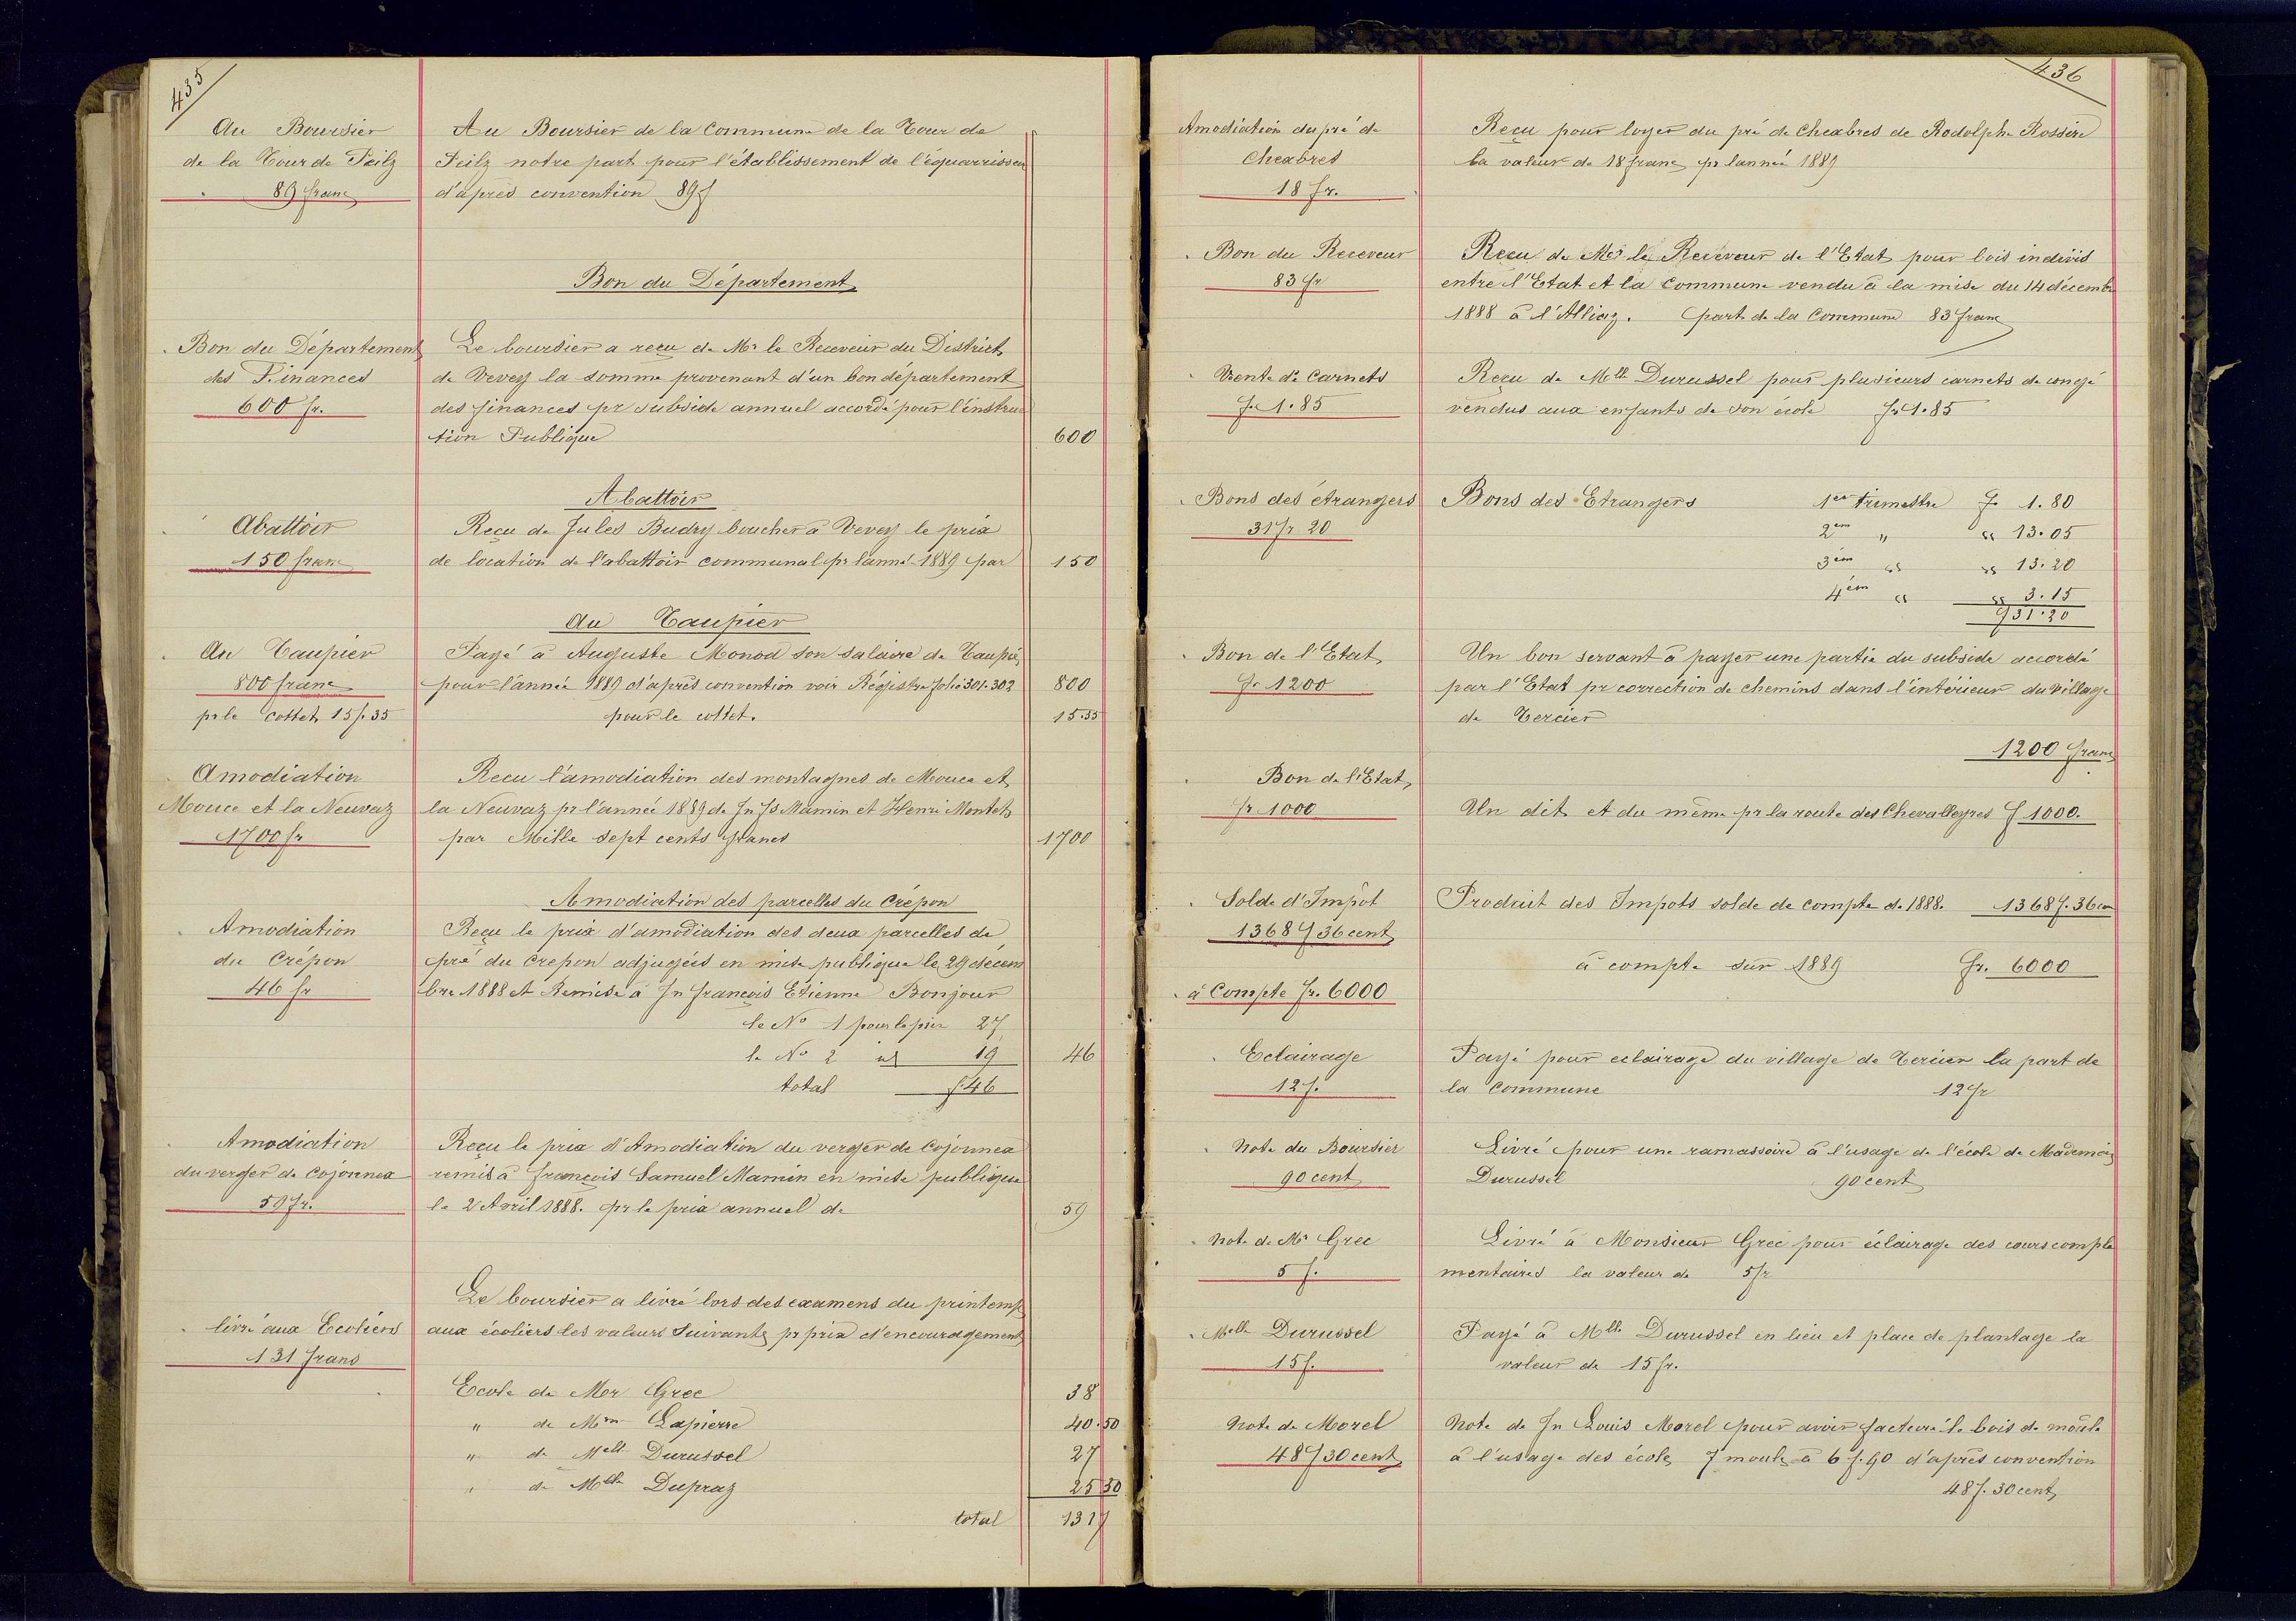 435
Au Boursier
de la Tour de Peilz
89 franc
Au Boursier de la Commune de la Tour de
Peilz notre part pour l'établissement de l'équarrisseur
d'après convention 89 f
Bon du Département
Bon du Département
des Finances
600 fr.
Le boursier a reçu de Mr le Receveur du District
de Vevey la somme provenant d'un bon département
des finances pr subside annuel accordé pour l'instruc
tion Publique 600
Abattoir
Abattoir
150 franc
Reçu de Jules Budry boucher à Vevey le prix
de location de l'abattoir communal pr l'anné 1889 par 150
Au Taupier
Au Taupier
800 franc
pr le Cottet 15 f. 35
Payé à Auguste Monod son salaire de Taupié,
pour l'année 1889 d'après convention voir Régistre folio 301.302 800
pour le cottet. 15.35
Amodiation
Mouce et la Neuvaz
1700 fr
Recu l'amodiation des montagnes de Mouce et
la Neuvaz pr l'année 1889 de Jn Js Mamin et Henri Montet
par Mille sept cents francs 1700
Amodiation des parcelles du Crépon
Amodiation
du Crépon
46 fr
Reçu le prix d'amodiation des deux parcelles de
pré du Crepon adjugées en mise publique le 29 décem
bre 1888 et Remise à Jn françois Etienne Bonjour
le No 1 pour le prix 27
le No 2 id 19 46
total f 46
Amodiation
du verger de Cojonnex
59 fr.
Reçu le prix d'Amodiation du verger de Cojonnex
remis à françois Samuel Mamin en mise publique
le 2 Avril 1888. pr le prix annuel de 59
livré aux Ecoliers
131 frans
Le boursier a livré lors des examens du printemps
aux écoliers les valeurs suivants pr prix d'encouragement
Ecole de Mer Grec 38
" de Mme Lapierre 40.50
" de Melle Durussel 27
" de Mlle Dupraz 25 50
total 131 f
436
Amodiation du pré de
Cheabres
18 fr.
Reçu pour loyer du pré de Cheabres de Rodolphe Rossire
la valeur de 18 franc pr l'année 1889
Bon du Receveur
83 fr
Recu de Mr le Receveur de l'Etat pour bois indivis
entre l'Etat et la Commune vendu à la mise du 14 décembre
1888 à l'Alliaz. part de la Commune 83 franc
Vente de Carnets
fr 1.85
Reçu de Mlle Durussel pour plusieurs carnets de congé
vendus aux enfants de son école fr 1.85
Bons des étrangers
31 fr 20
Bons des Etrangers 1er trimestre F 1.80
2em " " 13.05
3em " " 13.20
4em " " 3.15
f 31.20
Bon de l'Etat
fr 1200
Un bon servant à payer une partie du subside accordé
par l'Etat pr correction de chemins dans l'intérieur du village
de Tercier
1200 franc
Bon de l'Etat
fr 1000
Un dit et du même pr la route des Chevalleyres f 1000.
Solde d'Impôt
1368 f 36 cent
Produit des Impots solde de compte de 1888. 1368 f. 36 cen
à Compte fr. 6000
à compte sur 1889 fr. 6000
Eclairage
12 f.
Payé pour eclairage du village de Tercier la part de
la Commune 12 fr
Note du Boursier
90 cent
Livré pour une ramassoire à l'usage de l'école de Mademois
Durussel 90 cent
Note de Mr Grec
5 f.
Livré à Monsieur Grec pour éclairage des cours complé
mentaires la valeur de 5 fr
Melle Durussel
15 f.
Payé à Mlle Durussel en lieu et place de plantage la
valeur de 15 fr.
Note de Morel
48 f 30 cent
Note de Jn Louis Morel pour avoir facturé le bois de moule
à l'usage des écoles 7 moule à 6 f. 90 d'après convention
48 f. 30 cent